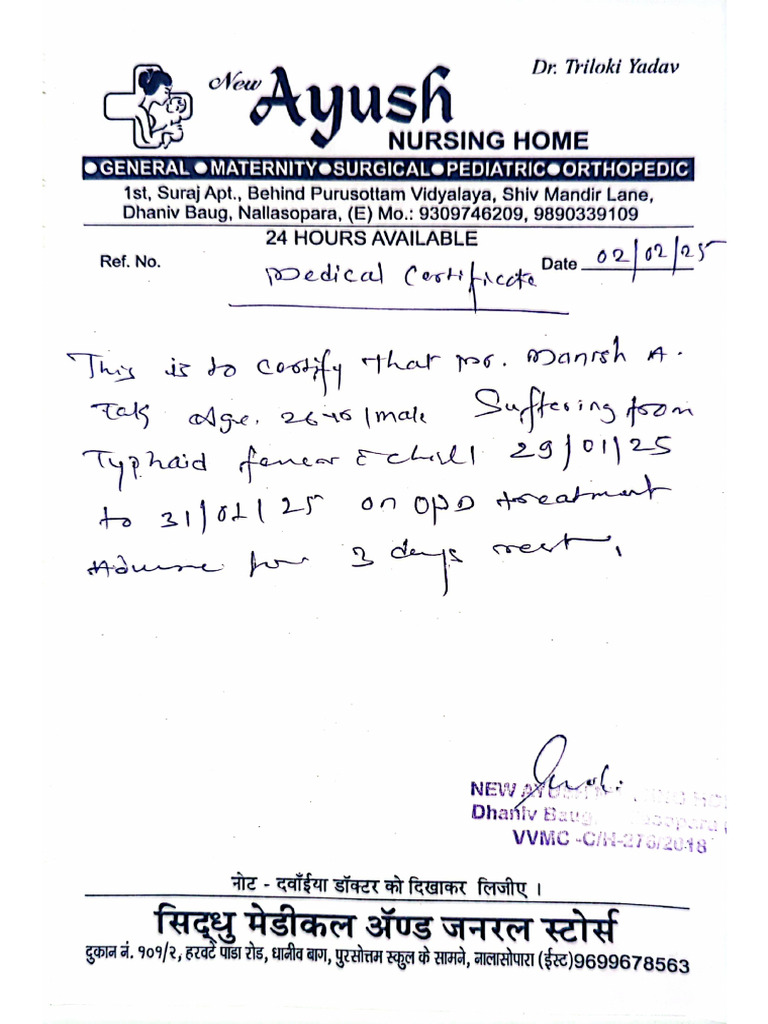 Dr. Triloki Yadav
New Ayush
NURSING HOME
●GENERAL ●MATERNITY●SURGICAL●PEDIATRIC●ORTHOPEDIC
1st, Suraj Apt., Behind Purusottam Vidyalaya, Shiv Mandir Lane,
Dhaniv Baug, Nallasopara, (E) Mo.: 9309746209, 9890339109
24 HOURS AVAILABLE
Ref. No. Date 02/02/25
Medical Certificate
This is to certify that Mr. Manish A.
Tak Age. 26 /male Suffering from
Typhaid & chill 29/01/25
to 31/01/25 on OPD treatment
Advise for 3 days rest,
NEW AYUSH
Dhaniv Baug,
VVMC -C/H-276/2018
नोट - दवाँईया डॉक्टर को दिखाकर लिजीए ।
सिद्धु मेडीकल ॲण्ड जनरल स्टोर्स
दुकान नं. १०१/२, हरवटे पाडा रोड, धानीव बाग, पुरसोत्तम स्कुल के सामने, नालासोपारा (ईस्ट)9699678563